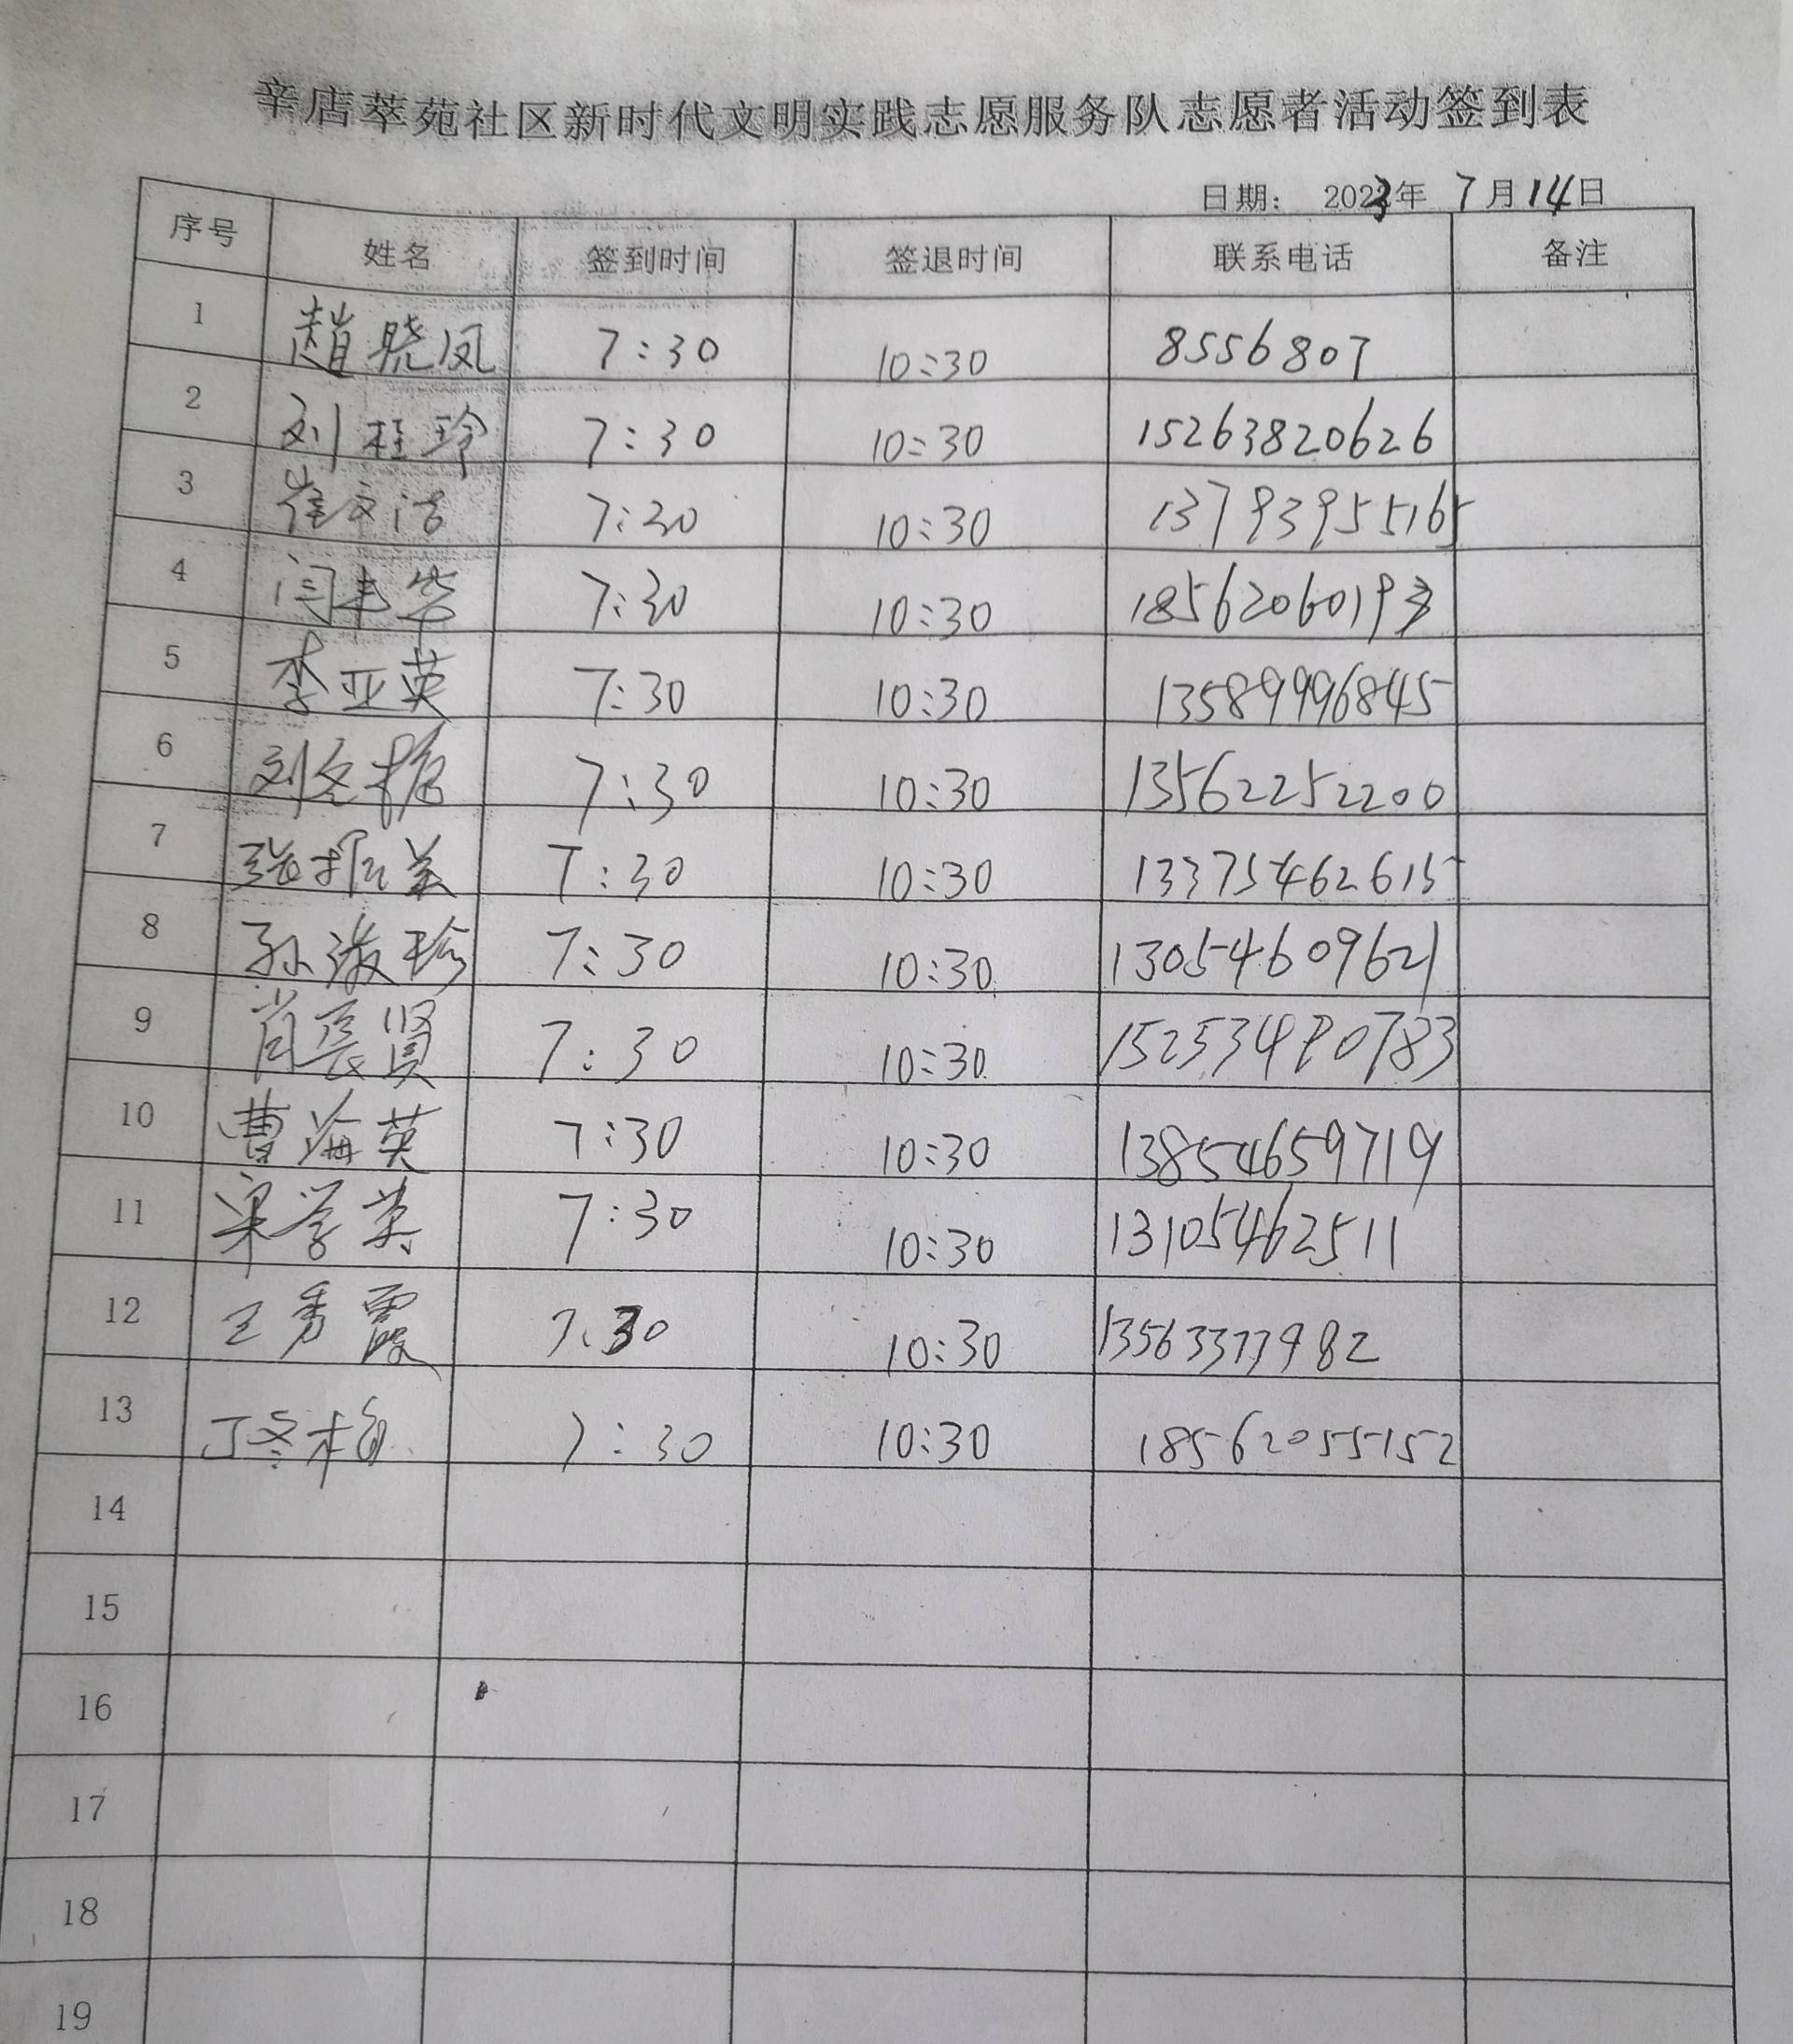 辛店萃苑社区新时代文明实践志愿服务队志愿者活动签到表
日期： 2023年 7月14日
序号 姓名 签到时间 签退时间 联系电话 备注
1 趙晓凤 7:30 10:30 8556807
2 刘桂玲 7:30 10:30 15263820626
3 崔文洁 7:30 10:30 13793955165
4 闫丰华 7:30 10:30
5 李亚英 7:30 10:30 13589996845
6 刘冬梅 7:30 10:30 13562252200
7 张振兰 7:30 10:30 13375462615
8 孙淑珍 7:30 10:30 13054609621
9 肖长贤 7:30 10:30
10 曹海英 7:30 10:30 13854659719
11 梁学英 7:30 10:30 13105462511
12 王秀霞 7:30 10:30
13 丁冬梅 7:30 10:30 18562055152
14
15
16
17
18
19